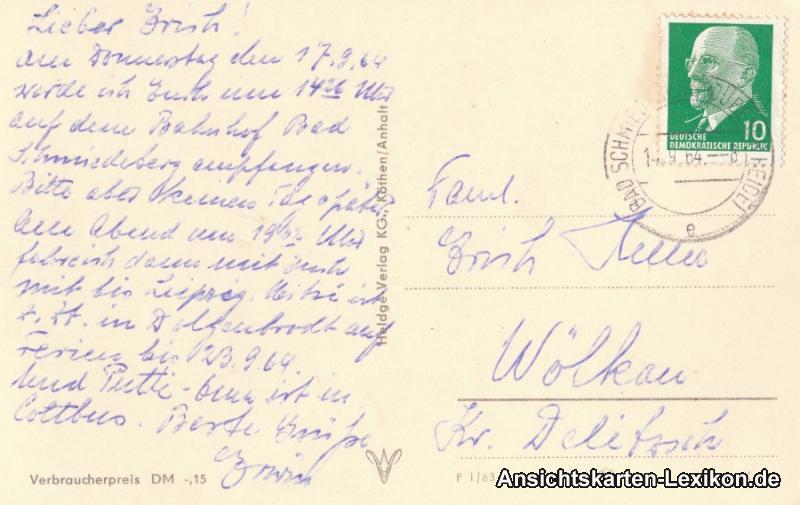 Lieber Erich!
am Donnerstag den 17.9.64
werde ich Euch um 14 Uhr
auf dem Bahnhof Bad
Schmiedeberg empfangen.
Bitte aber keinen Tag später
am Abend um 19 Uhr
fahre ich dann mit Euch
mit bis Leipzig. ist
z. Zt. in Dolgenbrodt auf
Ferien bis 23.9.64.
Und Putti-Oma ist in
Cottbus. Beste Grüße
Erwin
Verbraucherpreis DM -,15
Heldge-Verlag KG., Köthen/Anhalt
DEUTSCHE 10
DEMOKRATISCHE REPUBLIK
BAD SCHMIED HEIDE)
9.64.
e
Faml.
Erich Keller
Wölkau
Kr. Delitzsch
P 1/63
Ansichtskarten-Lexikon.de